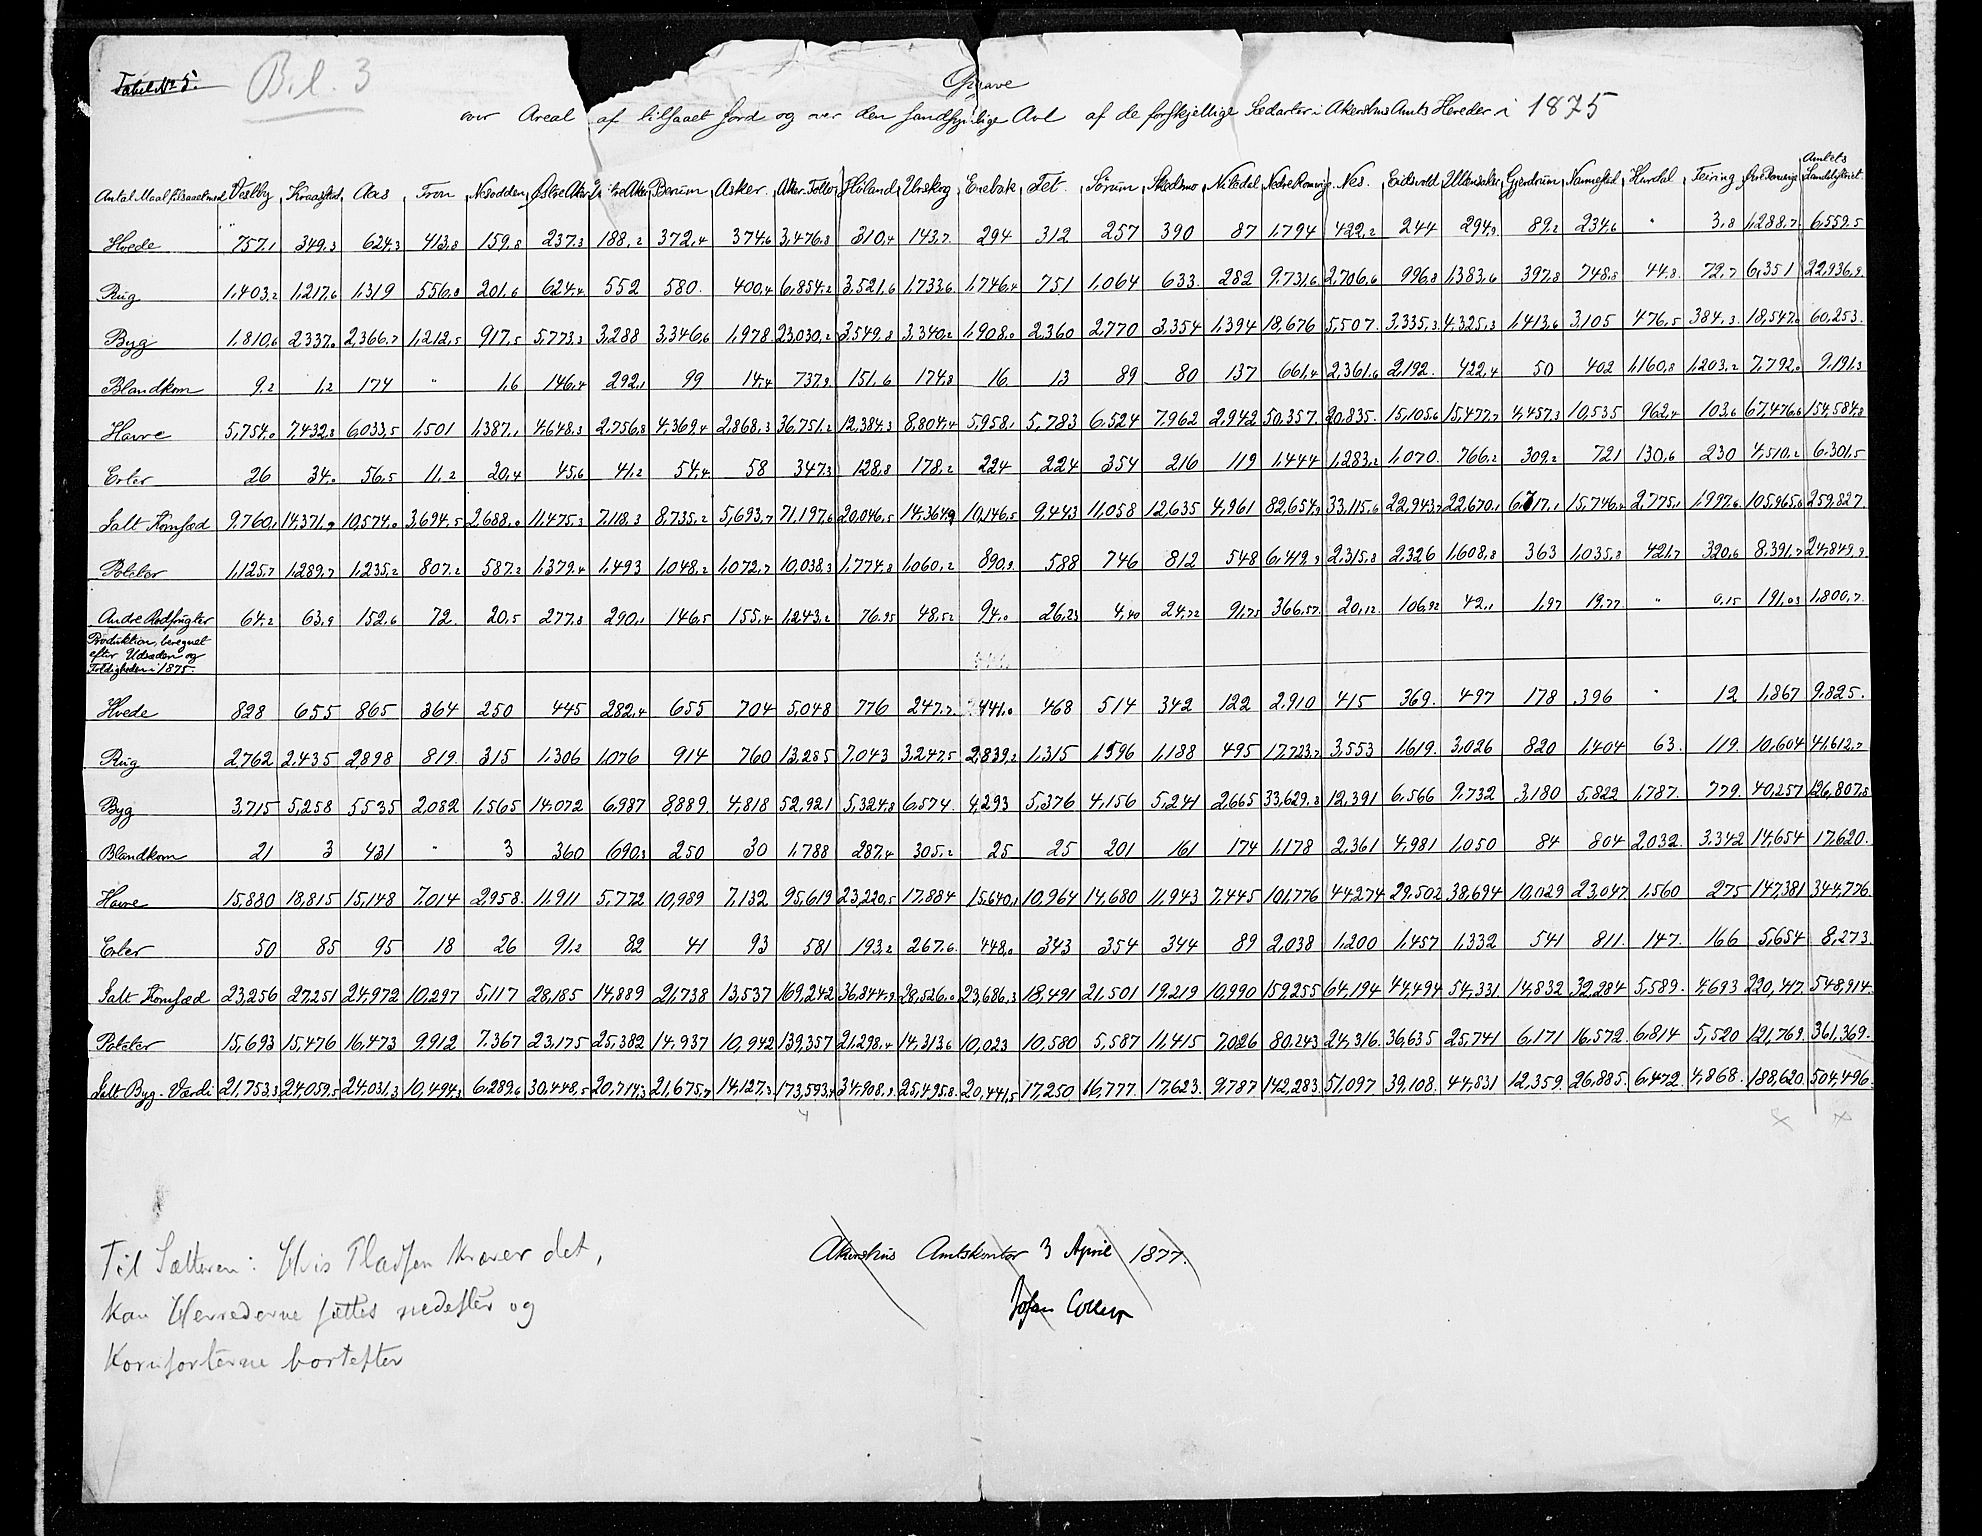 Tabel No 5.
Bil. 3
Opgave
over Areal af tilsaaet Jord og over den sandsynlige Avl af de forskjellige Sædarter i Akershus Amts Hereder i 1875
Antal Maal tilsaaet med Vestby Kraakstad Aas Fron Nesodden Østre Aker Vestre Aker Bærum Asker. Aker Follo Høland Urskog Enebak Fet. Sørum Skedsmo Nitedal Nedre Romerig Nes. Eidsvold Ullensaker Gjerdrum Nannestad Hurdal Feiring Øvre Romerige Amtets Landdistrict.
Hvede 757,1 349,3 624,3 413,8 159,8 237,3 188,2 372,4 374,6 3,476,8 310,4 143,7 294 312 257 390 87 1,794 422,2 244 294,9 89,2 234,6 " 3,8 1,288,7 6,559,5
Rug 1,403,2 1,217,6 1,319 556,8 201,6 624,4 552 580. 400,4 6,854,2 3,521,6 1,733,6 1,746,4 751 1,064 633. 282 9,731,6 2,706,6 996,8 1,383,6 397,8 748,8 44,8 72,7 6,351 22,936,9
Byg 1,810,6 2337,0 2,366,7 1,212,5 917,5 5,773,3 3,288 3,346,6 1,978 23,030,2 3,549,8 3,340,2 1,908,0 2,360 2,770 3,354 1,394 18,676 5,507. 3,335,3 4,325,3 1,413,6 3,105 476,5 384,3 18,547,0 60,253.
Blandkorn 9,2 1,2 174 " 1,6 146,4 292,1 99 14,4 737,9 151,6 174,8 16 13 89 80 137 661,4 2,361,6 2,192. 422,4 50 402 1,160,8 1,203,2 7,792,0 9,191,3
Havre 5,754,0 7,432,8 6,033,5 1,501 1,387,1 4,648,3 2,756,8 4,369,4 2,868,3 36,751,2 12,384,3 8,804,4 5,958,1 5,783 6,524 7,962 2,942 50,357. 20,835. 15,105,6 15,477,7 4,457,3 10,535 962,4 103,6 67,476,6 154,584,8
Erter 26 34,0 56,5 11,2 20,4 45,6 41,2 54,4 58 347,3 128,8 178,2 224 224 354 216 119 1,444 1,283,2 1,070. 766,2 309,2 721 130,6 230 4,510,2 6,301,5
Salt Kornsæd 9,760,1 14,371,9 10,574,0 3,694,5 2,688,0 11,475,3 7,118,3 8,735,2 5,693,7 71,197,6 20,046,5 14,364,9 10,146,5 9,443 11,058 12,635 4,961 82,654,9 33,115,6 22,943,7 22,670,1 6,717,1 15,746,4 2,775,1 1,997,6 105,965,6 259,827.
Poteter 1,125,7 1,289,7 1,235,2 807,2 587,2 1,379,4 1,493 1,048,2 1,072,7 10,038,3 1,774,8 1,060,2 890,9 588 746 812 548 6,419,9 2,315,8 2,326 1,608,8 363 1,035,8 421,7 320,6 8,391,7 24,849,9
Andre Rodfrugter 64,2 63,9 152,6 72. 20,5 277,8 290,1 146,5 155,4 1,243,2 76,95 48,52 94,0 26,23 4,40 24,72 91,75 366,57 20,12 106,92 42,1 1,97 19,77 " 0,15 191,03 1,800,7.
Produktion, beregnet
efter Udsæden og
Foldigheden i 1875.
Hvede 828 655 865 364 250 445 282,4 655 704 5,048 776 247,7 441,0 468 514 342 122 2,910 415 369. 497 178 396 " 12 1,867 9,825.
Rug 2762 2,435 2,898 819 315 1,306 1,076 914 760 13,285 7,043 3,247,5 2,839,2 1,315 1,596 1,188 495 17,723,7 3,553 1,619. 3,026 820 1,404 63. 119. 10,604 41,612,7
Byg 3,715 5,258 5535 2,082 1,565 14,072 6,987 8,889. 4,818 52,921 5,324,8 6,574. 4,293 5,376 4,156 5,241 2,665 33,629,8 12,391 6,566 9,732 3,180 5,822 1,787. 779. 40,257 126,807,8
Blandkorn 21 3 431 " 3 360 690,3 250 30 1,788 287,4 305,2 25 25 201 161 174 1,178 2,361 4,981 1,050 84 804 2,032. 3,342 14,654 17,620.
Havre 15,880 18,815 15,148 7,014 2,958. 11,911 5,772 10,989 7,132 95,619 23,220,5 17,884 15,640,1 10,964 14,680 11,943 7,445 101,776 44,274 29,502 38,694 10,029 23,047 1,560 275 147,381 344,776
Erter 50 85 95 18 26 91,2 82 41 93 581 193,2 267,6 448,0 343 354 344 89 2,038 1,200 1,457 1,332 541 811. 147. 166 5,654 8,273.
Salt Kornsæd 23,256 27,251 24,972 10,297 5,117 28,185 14,889 21,738 13,537 169,242 36,844,9 28,526,0 23,686,3 18,491 21,501 19,219 10,990 159,255 64,194 44,494 54,331 14,832 32,284 5,589. 4,693 220,417. 548,914.
Poteter 15,693 15,476 16,473 9,912 7,367 23,175 25,382 14,937 10,942 139,357 21,298,4 14,313,6 10,023 10,580 5,587 11,415 7,026 80,243 24,316. 36,635 25,741 6,171 16,572. 6,814 5,520 121,769. 361,369.
Salt Byg-Værdi 21,753,3 24,059,5 24,031,3 10,494,3 6,289,6 30,448,5 20,714,3 21,675,7 14,127,3 173,593,4 34,908,9 25,495,8 20,441,5 17,250 16,777. 17,623. 9,787 142,283. 51,097. 39,108. 44,831 12,359. 26,885. 6,472. 4,868. 188,620. 504,496.
Til Sætteren: Hvis Pladsen kræver det,
kan Herrederne sættes nedefter og
Kornsorterne bortefter
Akershus Amtskontor 3 April 1877.
Johan Collett